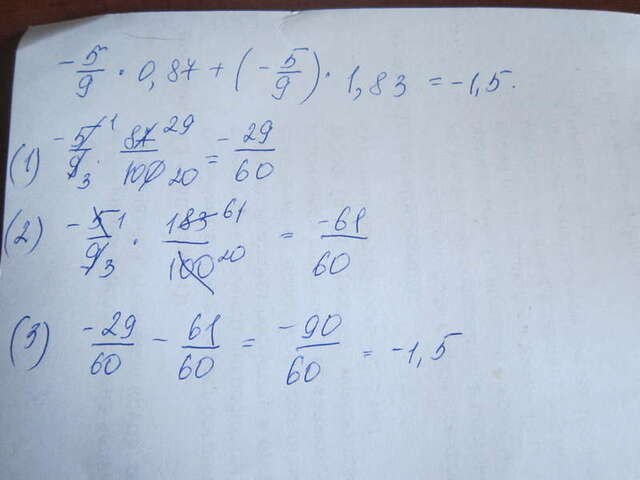 -5/9 · 0,87 + (-5/9) · 1,83 = -1,5.
(1) -5/9 · 87/100 = -29/60
(2) -5/9 · 183/100 = -61/60
(3) -29/60 - 61/60 = -90/60 = -1,5